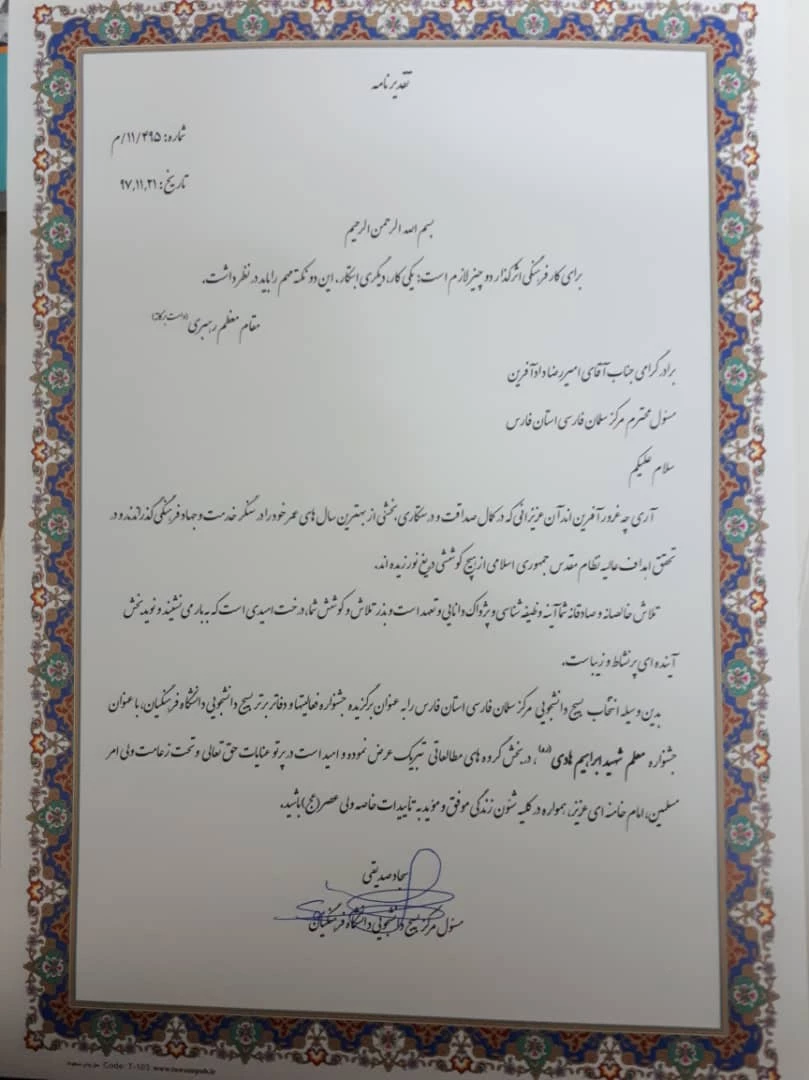 تقدیرنامه
شماره: ۱۱/۴۹۵/م
تاریخ: ۹۷,۱۱,۲۱
بسم الله الرحمن الرحیم
برای کار فرهنگی اثرگذار دو چیز لازم است: یکی کار، دیگری ابتکار، این دو نکته مهم را باید در نظر داشت.
مقام معظم رهبری (دامت برکاته)
برادر گرامی جناب آقای امیررضا دادآفرین
مسئول محترم مرکز سلمان فارسی استان فارس
سلام علیکم
آری چه غرور آفرین اند آن عزیزانی که در کمال صداقت و درستکاری، بخشی از بهترین سال های عمر خود را در سنگر خدمت و جهاد فرهنگی گذراندند و در
تحقق اهداف عالیه نظام مقدس جمهوری اسلامی از هیچ کوششی دریغ نورزیده اند.
تلاش خالصانه و صادقانه شما آینه وظیفه شناسی و پژواک دانایی و تعهد است و بذر تلاش و کوشش شما، درخت امیدی است که به بار می نشیند و نوید بخش
آینده ای پر نشاط و زیباست.
بدین وسیله انتخاب بسیج دانشجویی مرکز سلمان فارسی استان فارس را به عنوان برگزیده جشنواره فعالیتها و دفاتر برتر بسیج دانشجویی دانشگاه فرهنگیان، با عنوان
جشنواره معلم شهید ابراهیم هادی(ره)، در بخش گروه های مطالعاتی تبریک عرض نموده و امید است در پرتو عنایات حق تعالی و تحت زعامت ولی امر
مسلمین، امام خامنه ای عزیز، همواره در کلیه شئون زندگی موفق و مؤید به تأییدات خاصه ولی عصر(عج) باشید.
سجاد صدیقی
مسئول مرکز بسیج دانشجویی دانشگاه فرهنگیان
Code: T-103